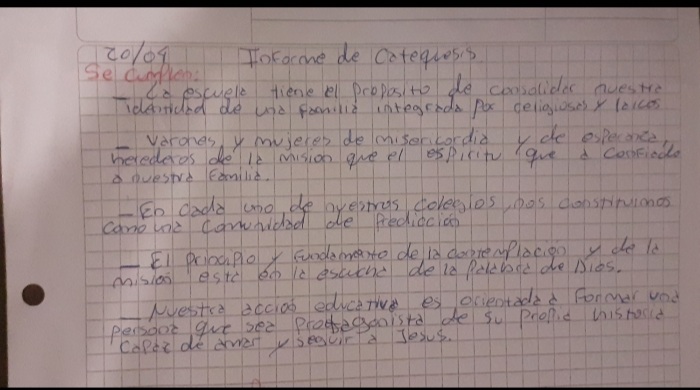 20/04 Informe de Catequesis
Se cumplen:
- La escuela tiene el proposito de consolidar nuestra
identidad de una familia integrada por religiosos y laicos
- Varones y mujeres de misericordia y de esperanza,
herederos de la mision que el espiritu que a confiado
a nuestra familia.
- En cada uno de nuestros colegios, nos constituimos
como una comunidad de Prediccion
- El principio y fundamento de la contemplacion y de la
mision esta en la escucha de la Palabra de Dios.
- Nuestra accion educativa es orientada a formar una
persona que sea protagonista de su propia historia
capaz de amar y seguir a Jesus.